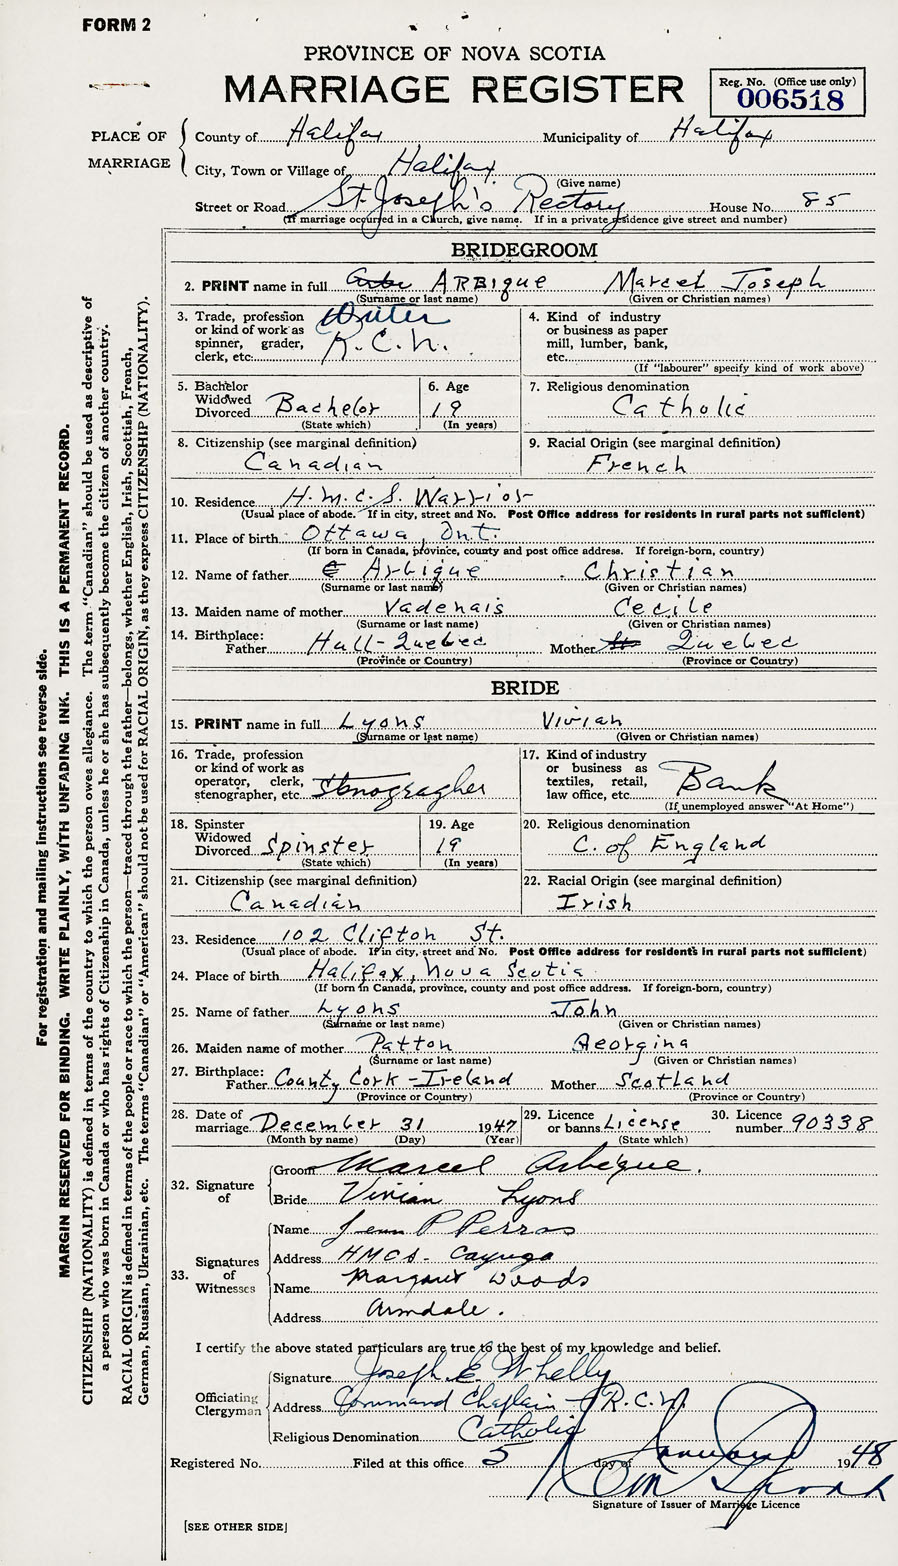 FORM 2
PROVINCE OF NOVA SCOTIA
MARRIAGE REGISTER
Reg. No. (Office use only)
006518
PLACE OF MARRIAGE
County of Halifax Municipality of Halifax
City, Town or Village of Halifax
(Give name)
Street or Road St. Joseph's Rectory House No. 85
(If marriage occurred in a Church, give name. If in a private residence give street and number)
BRIDEGROOM
2. PRINT name in full ARBIQUE Marcel Joseph
(Surname or last name) (Given or Christian names)
3. Trade, profession or kind of work as spinner, grader, clerk, etc. Writer R.C.N.
4. Kind of industry or business as paper mill, lumber, bank, etc.
(If "labourer" specify kind of work above)
5. Bachelor Widowed Divorced Bachelor
(State which)
6. Age 19
(In years)
7. Religious denomination
Catholic
8. Citizenship (see marginal definition)
Canadian
9. Racial Origin (see marginal definition)
French
10. Residence H.M.C.S. Warrior
(Usual place of abode. If in city, street and No. Post Office address for residents in rural parts not sufficient)
11. Place of birth Ottawa, Ont.
(If born in Canada, province, county and post office address. If foreign-born, country)
12. Name of father Arbique Christian
(Surname or last name) (Given or Christian names)
13. Maiden name of mother Vadenais Cecile
(Surname or last name) (Given or Christian names)
14. Birthplace:
Father Hull-Quebec Mother Quebec
(Province or Country) (Province or Country)
BRIDE
15. PRINT name in full Lyons Vivian
(Surname or last name) (Given or Christian names)
16. Trade, profession or kind of work as operator, clerk, stenographer, etc. Stenogragher
17. Kind of industry or business as textiles, retail, law office, etc. Bank
(If unemployed answer "At Home")
18. Spinster Widowed Divorced Spinster
(State which)
19. Age 19
(In years)
20. Religious denomination
C. of England
21. Citizenship (see marginal definition)
Canadian
22. Racial Origin (see marginal definition)
Irish
23. Residence 102 Clifton St.
(Usual place of abode. If in city, street and No. Post Office address for residents in rural parts not sufficient)
24. Place of birth Halifax, Nova Scotia
(If born in Canada, province, county and post office address. If foreign-born, country)
25. Name of father Lyons John
(Surname or last name) (Given or Christian names)
26. Maiden name of mother Patton Georgina
(Surname or last name) (Given or Christian names)
27. Birthplace:
Father County Cork - Ireland Mother Scotland
(Province or Country) (Province or Country)
28. Date of marriage December 31 1947
(Month by name) (Day) (Year)
29. Licence or banns License
(State which)
30. Licence number 90338
32. Signature of
Groom Marcel Arbique.
Bride Vivian Lyons
33. Signatures of Witnesses
Name Jean P Perras
Address HMCS - Cayuga
Name Margaret Woods
Address Armdale.
I certify the above stated particulars are true to the best of my knowledge and belief.
Officiating Clergyman
Signature Joseph E. Whelly
Address Command Chaplain - R.C.N.
Religious Denomination Catholic
Registered No. Filed at this office 5 day of January 1948
Signature of Issuer of Marriage Licence
[SEE OTHER SIDE]
For registration and mailing instructions see reverse side.
MARGIN RESERVED FOR BINDING. WRITE PLAINLY, WITH UNFADING INK. THIS IS A PERMANENT RECORD.
CITIZENSHIP (NATIONALITY) is defined in terms of the country to which the person owes allegiance. The term "Canadian" should be used as descriptive of
a person who was born in Canada or who has rights of Citizenship in Canada, unless he or she has subsequently become the citizen of another country.
RACIAL ORIGIN is defined in terms of the people or race to which the person—traced through the father—belongs, whether English, Irish, Scottish, French,
German, Russian, Ukrainian, etc. The terms "Canadian" or "American" should not be used for RACIAL ORIGIN, as they express CITIZENSHIP (NATIONALITY).